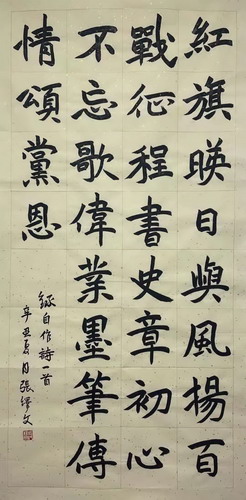 紅旗暎日與風揚百
戰征程書史章初心
不忘歌偉業墨筆傳
情頌黨恩
錄自作詩一首
辛丑夏月張文